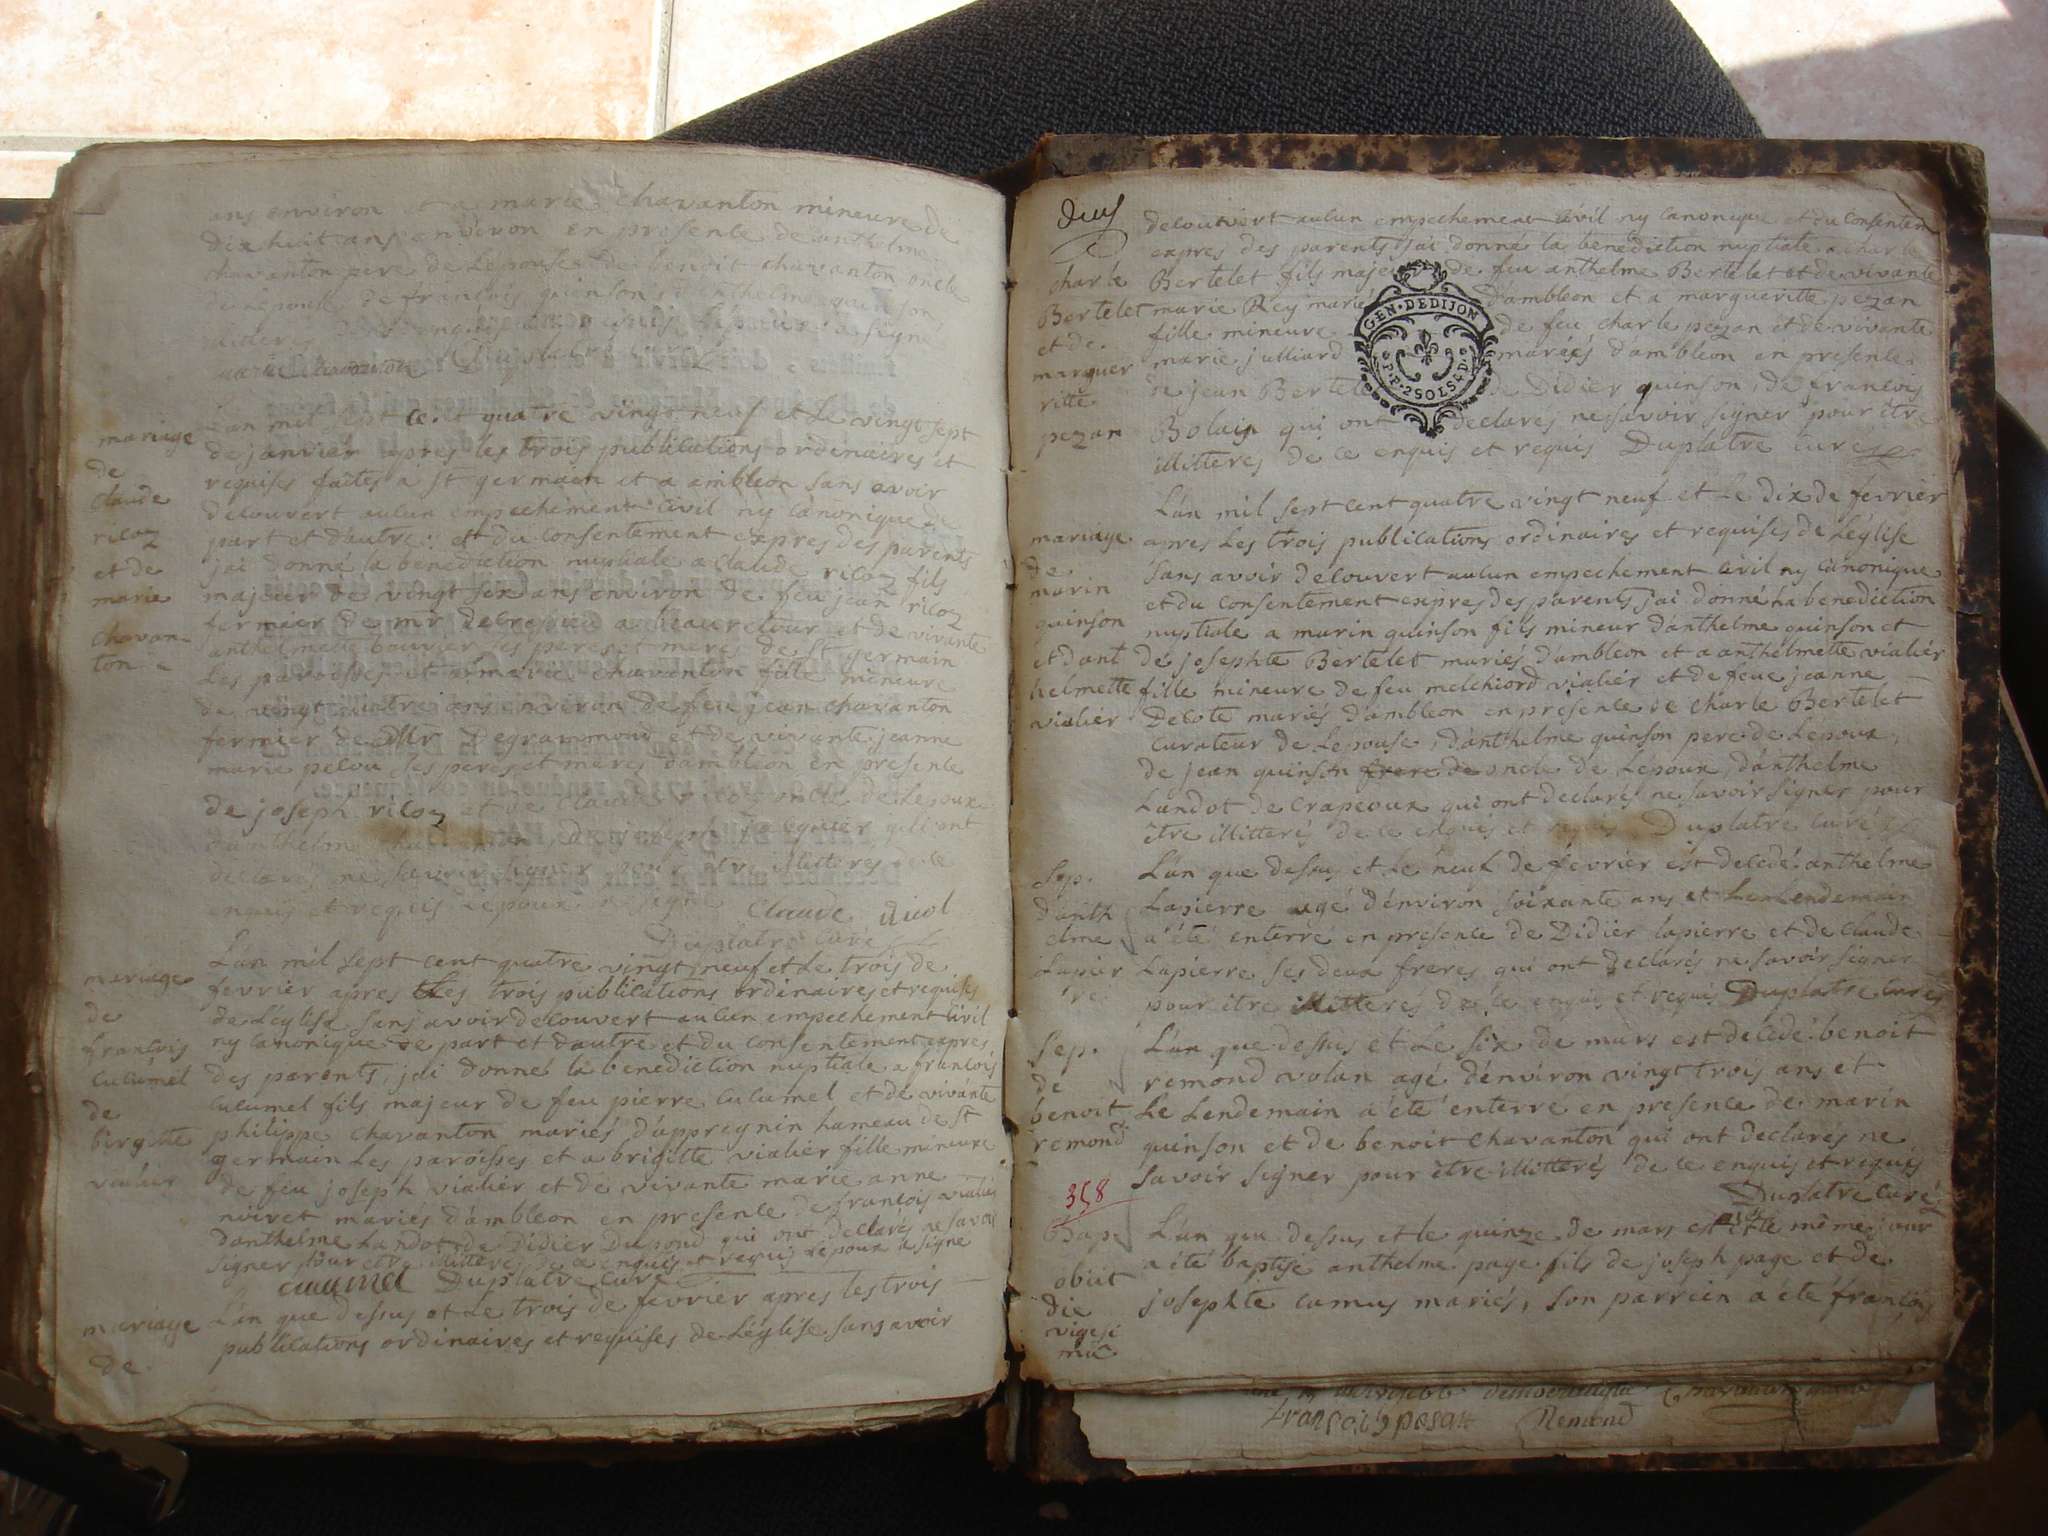 ans environ et a marie chavanton mineure de
dix huit ans environ en presence de anthelme
chavanton pere de Lepouse de benoit chavanton oncle
de Lepouse de francois quinson danthelme quinson
marie chavanton Duplatre
mariage
de
claude
ricoz
et de
marie
chavan-
ton
Lan mil sept cent quatre vingt neuf et Le vingt sept
de janvier apres les trois publications ordinaires et
requises faites a st germain et a ambleon sans avoir
decouvert aucun empechement civil ny canonique de
part et dautre et du consentement expres des parents
jai donné la benediction nuptiale a claude ricoz fils
majeur de vingt ans environ de feu jean ricoz
fermier de mr a beauretour et de vivante
anthelmette bouvier ses peres et meres de st germain
Les paroisses et a marie chavanton fille mineure
de vingt quatre ans environ de feu jean chavanton
fermier de Mr Degrammond et de vivante jeanne
marie pelou ses peres et meres dambleon en presence
de joseph ricoz et de claude ricoz oncle de Lepoux
danthelme chavanton de joseph qui ont
declarés ne savoir signer pour etre illitterés de ce
enquis et requis Lepoux a signé claude Ricol
Duplatre curé
mariage
de
francois
cucumel
de
birgitte
vialier
L'an mil sept cent quatre vingt neuf et Le trois de
fevrier apres Les trois publications ordinaires et requises
de Leglise sans avoir decouvert aucun empechement civil
ny canonique de part et dautre et du consentement expres
des parents, jai donné la benediction nuptiale a francois
cucumel fils majeur de feu pierre cucumel et de vivante
philippe chavanton mariés d'appregnin hameau de st
germain Les paroisses et a brigitte vialier fille mineure
de feu joseph vialier et de vivante marie anne
noiret mariés d'ambleon en presence de francois vialier
danthelme Landot de Didier Dupond qui ont declarés ne savoir
signer pour etre illitterés de ce enquis et requis Lepoux a signé
cucumel Duplatre curé
mariage
de
L'an que dessus et Le trois de fevrier apres les trois
publications ordinaires et requises de Léglise sans avoir
charle
Bertelet
et de
marguer
ritte
pezan
decouvert aucun empechement civil ny canonique et du consentem
expres des parents jai donné la benediction nuptiale a charle
Bertelet fils majeur de feu anthelme Bertelet et de vivante
marie Rey mariés d'ambleon et a margueritte pezan
fille mineure de feu charle pezan et de vivante
marie julliard mariés d'ambleon en presence
de jean Bertelet de Didier quinson, de francois
Bolain qui ont declarés ne savoir signer pour être
illitterés de ce enquis et requis Duplatre curé
GEN·DEDIJON
P.P. 2SOLS4D.
mariage
de
marin
quinson
et dant
helmette
vialier
L'an mil sept cent quatre vingt neuf et Le dix de fevrier
apres Les trois publications ordinaires et requises de Léglise
sans avoir decouvert aucun empechement civil ny canonique
et du consentement expres des parents jai donné la benediction
nuptiale a marin quinson fils mineur d'anthelme quinson et
de josephte Bertelet mariés d'ambleon et a anthelmette vialier
fille mineure de feu melchiord vialier et de feue jeanne
Decote mariés d'ambleon en presence de charle Bertelet
curateur de Lepouse, d'anthelme quinson pere de Lepoux,
de jean quinson frere de oncle de Lépoux, d'anthelme
Landot de Crapeoux qui ont declarés ne savoir signer pour
être illitterés de ce enquis et requis Duplatre curé
Sep.
d'anth
elme
Lapier
re
L'an que dessus et Le neuf de fevrier est decedé anthelme
Lapierre agé d'environ soixante ans et Le Lendemain
a été enterré en presence de Didier Lapierre et de claude
Lapierre ses deux freres, qui ont declarés ne savoir signer
pour être illitterés de ce enquis et requis Duplatre curé
Sep.
de
benoit
remond
L'an que dessus et Le six de mars est decedé benoit
remond volan agé d'environ vingt trois ans et
Le Lendemain a été enterré en presence de marin
quinson et de benoit chavanton qui ont declarés ne
savoir signer pour être illitterés de ce enquis et requis
Duplatre curé
358
Bap
obiit
die
vigesi
mâ
L'an que dessus et le quinze de mars est né et le même jour
a été baptisé anthelme page fils de joseph page et de
josephte camus mariés, son parrein a été francois
Remond